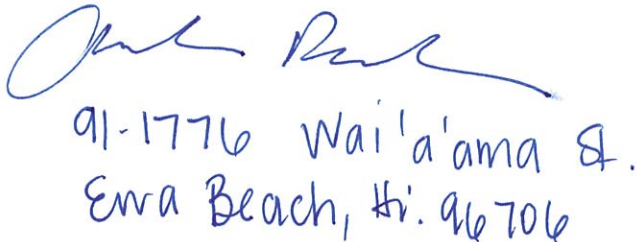 91-1776 Wai'a'ama St.
Ewa Beach, Hi. 96706